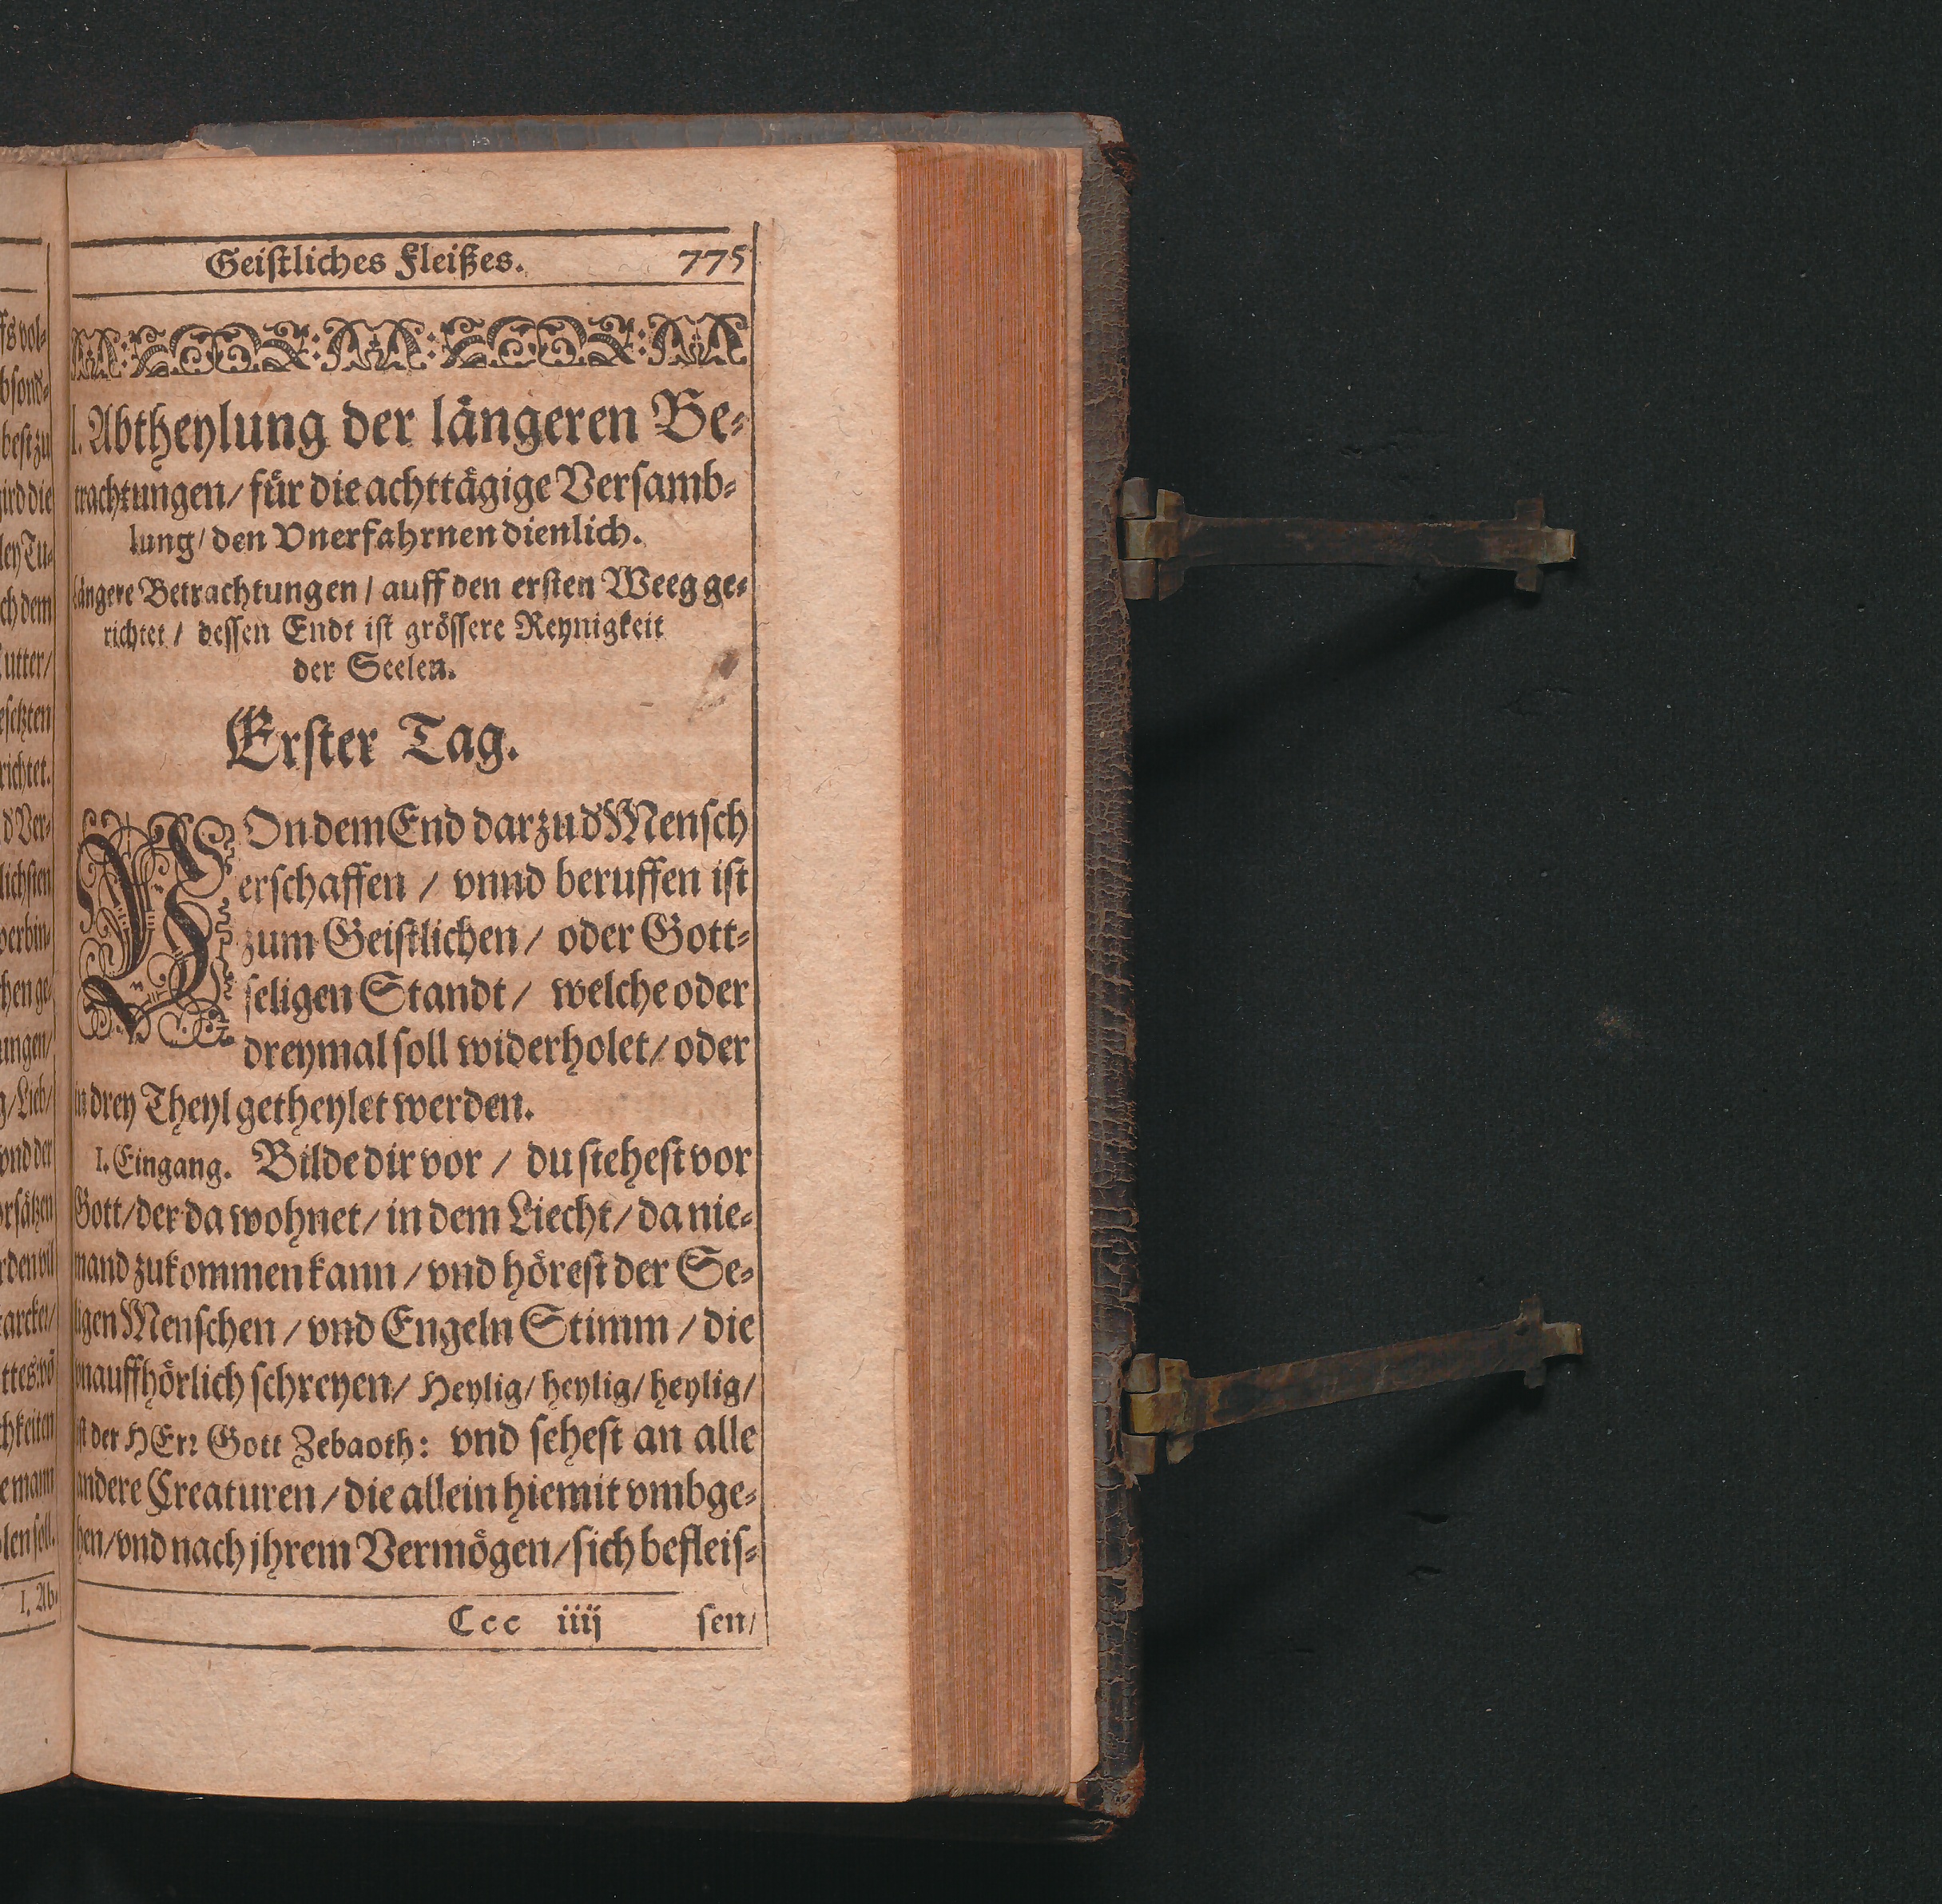 Geistliches Fleißes. 775
I. Abtheylung der längeren Be-
trachtungen/ für die achttägige Versamb-
lung/ den Vnerfahrnen dienlich.
längere Betrachtungen/ auff den ersten Weeg ge-
richtet/ dessen Endt ist grössere Reynigkeit
der Seelen.
Erster Tag.
VOn dem End darzu d' Mensch
erschaffen / vnnd beruffen ist
zum Geistlichen/ oder Gott-
seligen Standt/ welche oder
dreymal soll widerholet/ oder
in drey Theyl getheylet werden.
1. Eingang. Bilde dir vor / du stehest vor
Gott/ der da wohnet/ in dem Liecht/ da nie-
mand zukommen kann/ vnd hörest der Se-
ligen Menschen/ vnd Engeln Stimm/ die
vnauffhörlich schreyen/ Heylig/ heylig/ heylig/
ist der HErr Gott Zebaoth: vnd sehest an alle
andere Creaturen/ die allein hiemit vmbge-
hen/ vnd nach jhrem Vermögen/ sich befleis-
Ccc iiij sen/